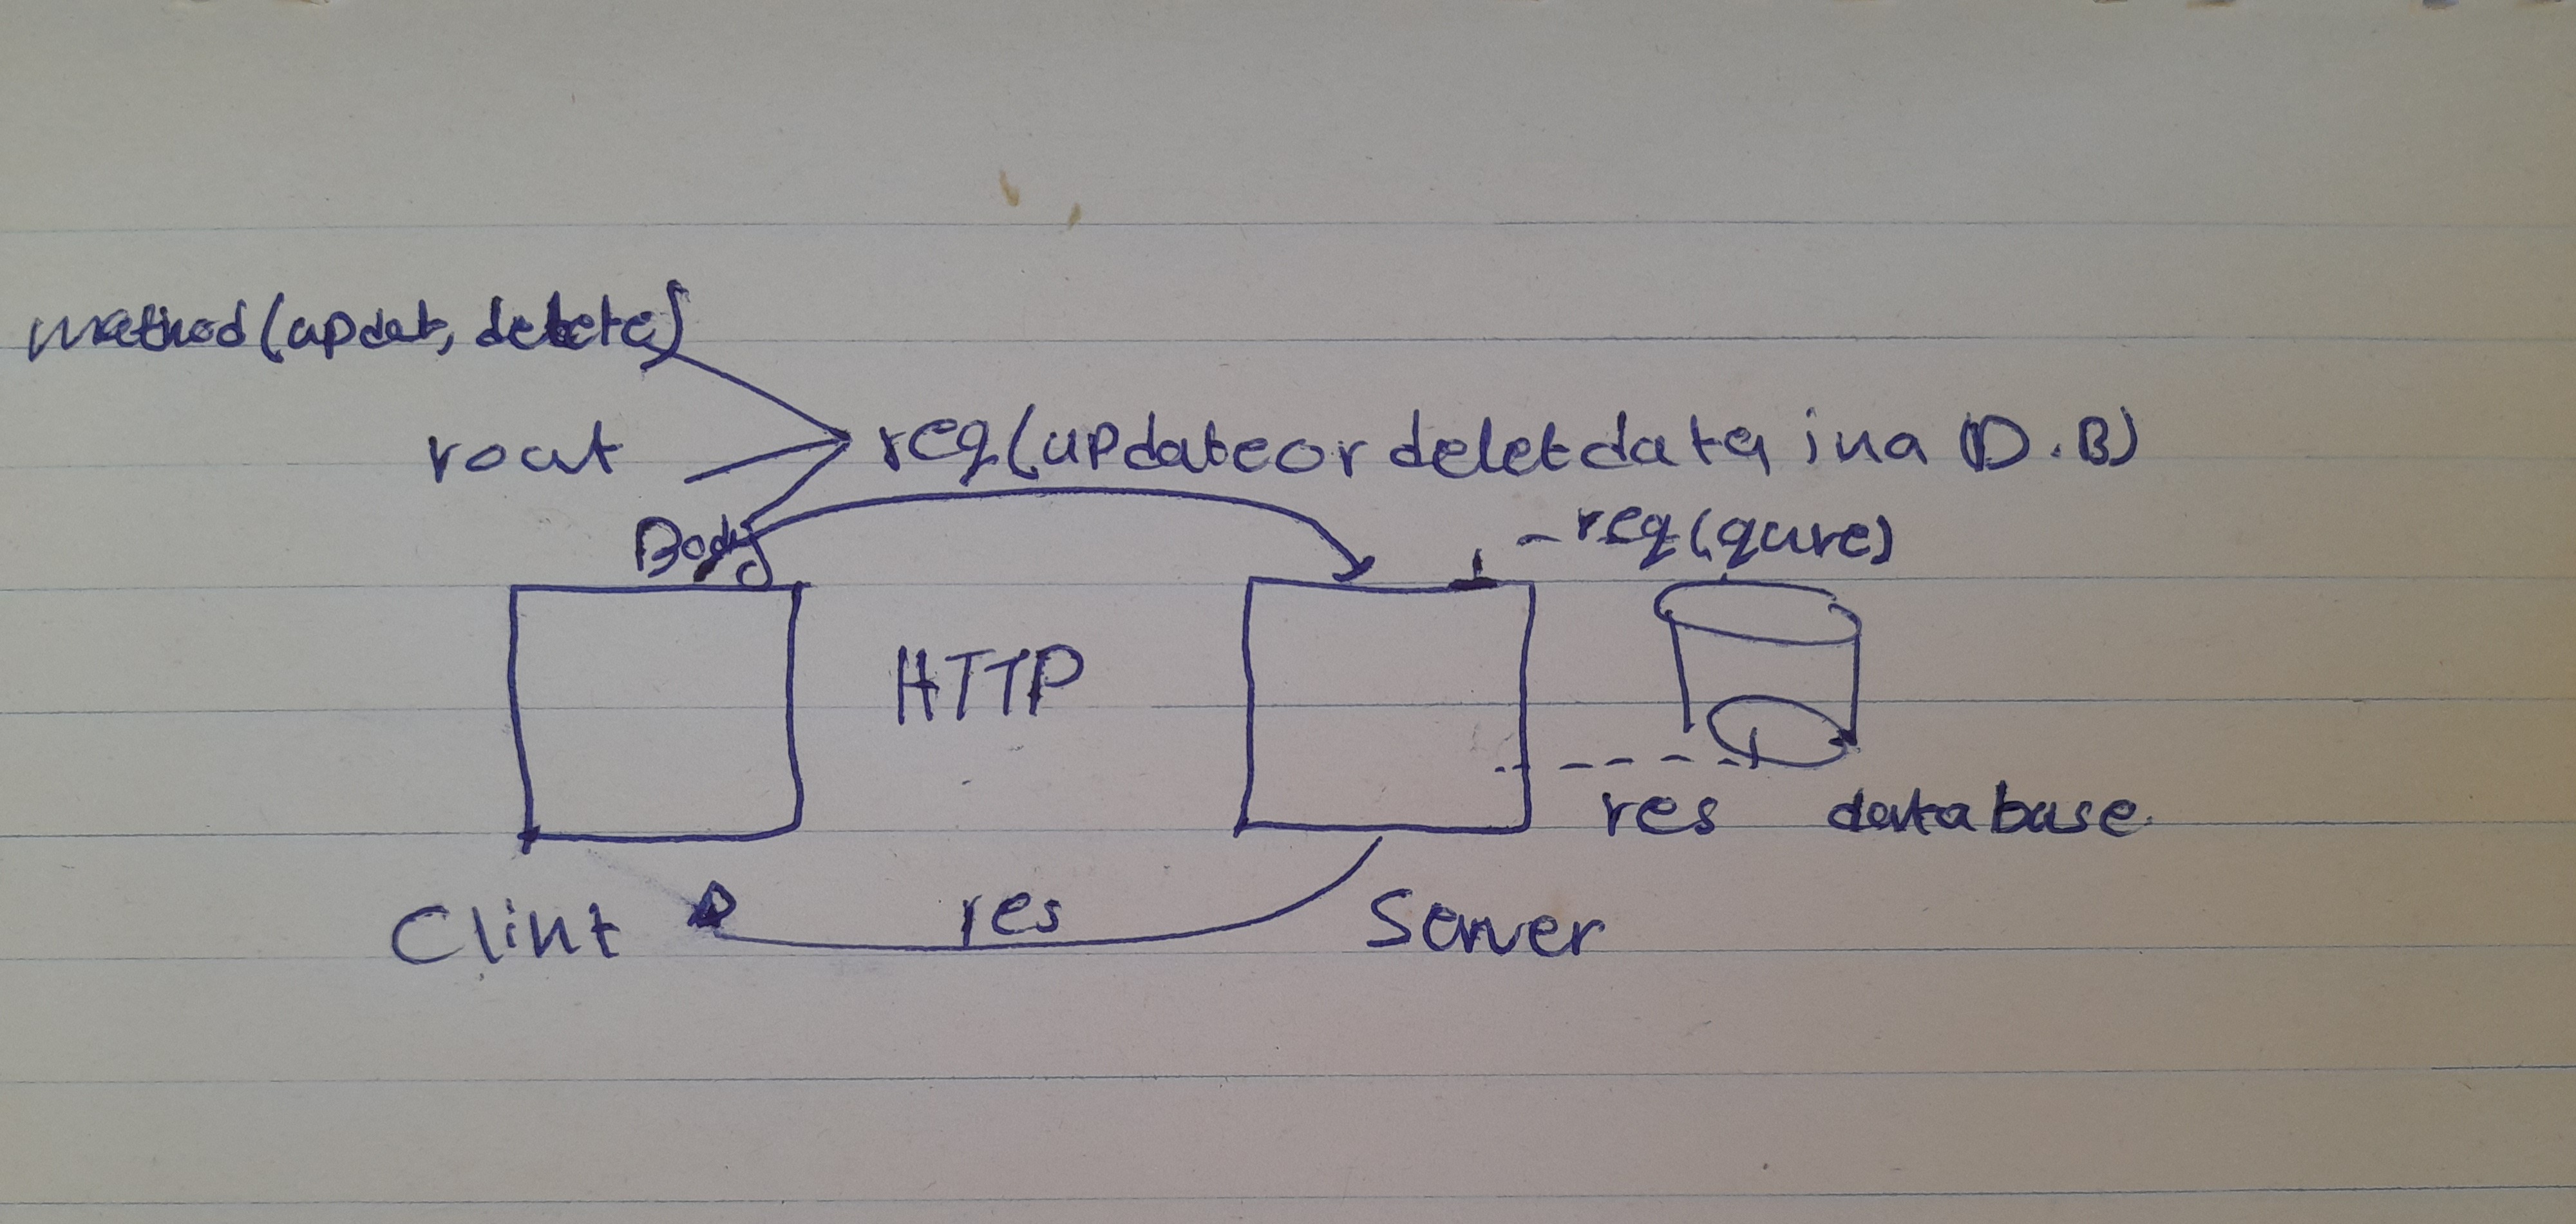 method(updat, delete)
rout
req(update or delet data in a D.B)
Body
-req(qure)
HTTP
res
database
Clint
res
Server